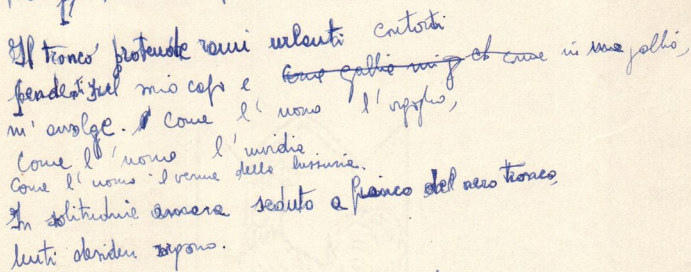 Il tronco protende rami urlanti contorti
pendenti sul mio capo e come in una gabbia,
m'avvolge. Come l'uomo l'orgoglio,
Come l'uomo l'invidia
Come l'uomo il verme della lussuria.
In solitudine amara seduto a fianco del nero tronco,
lenti desideri